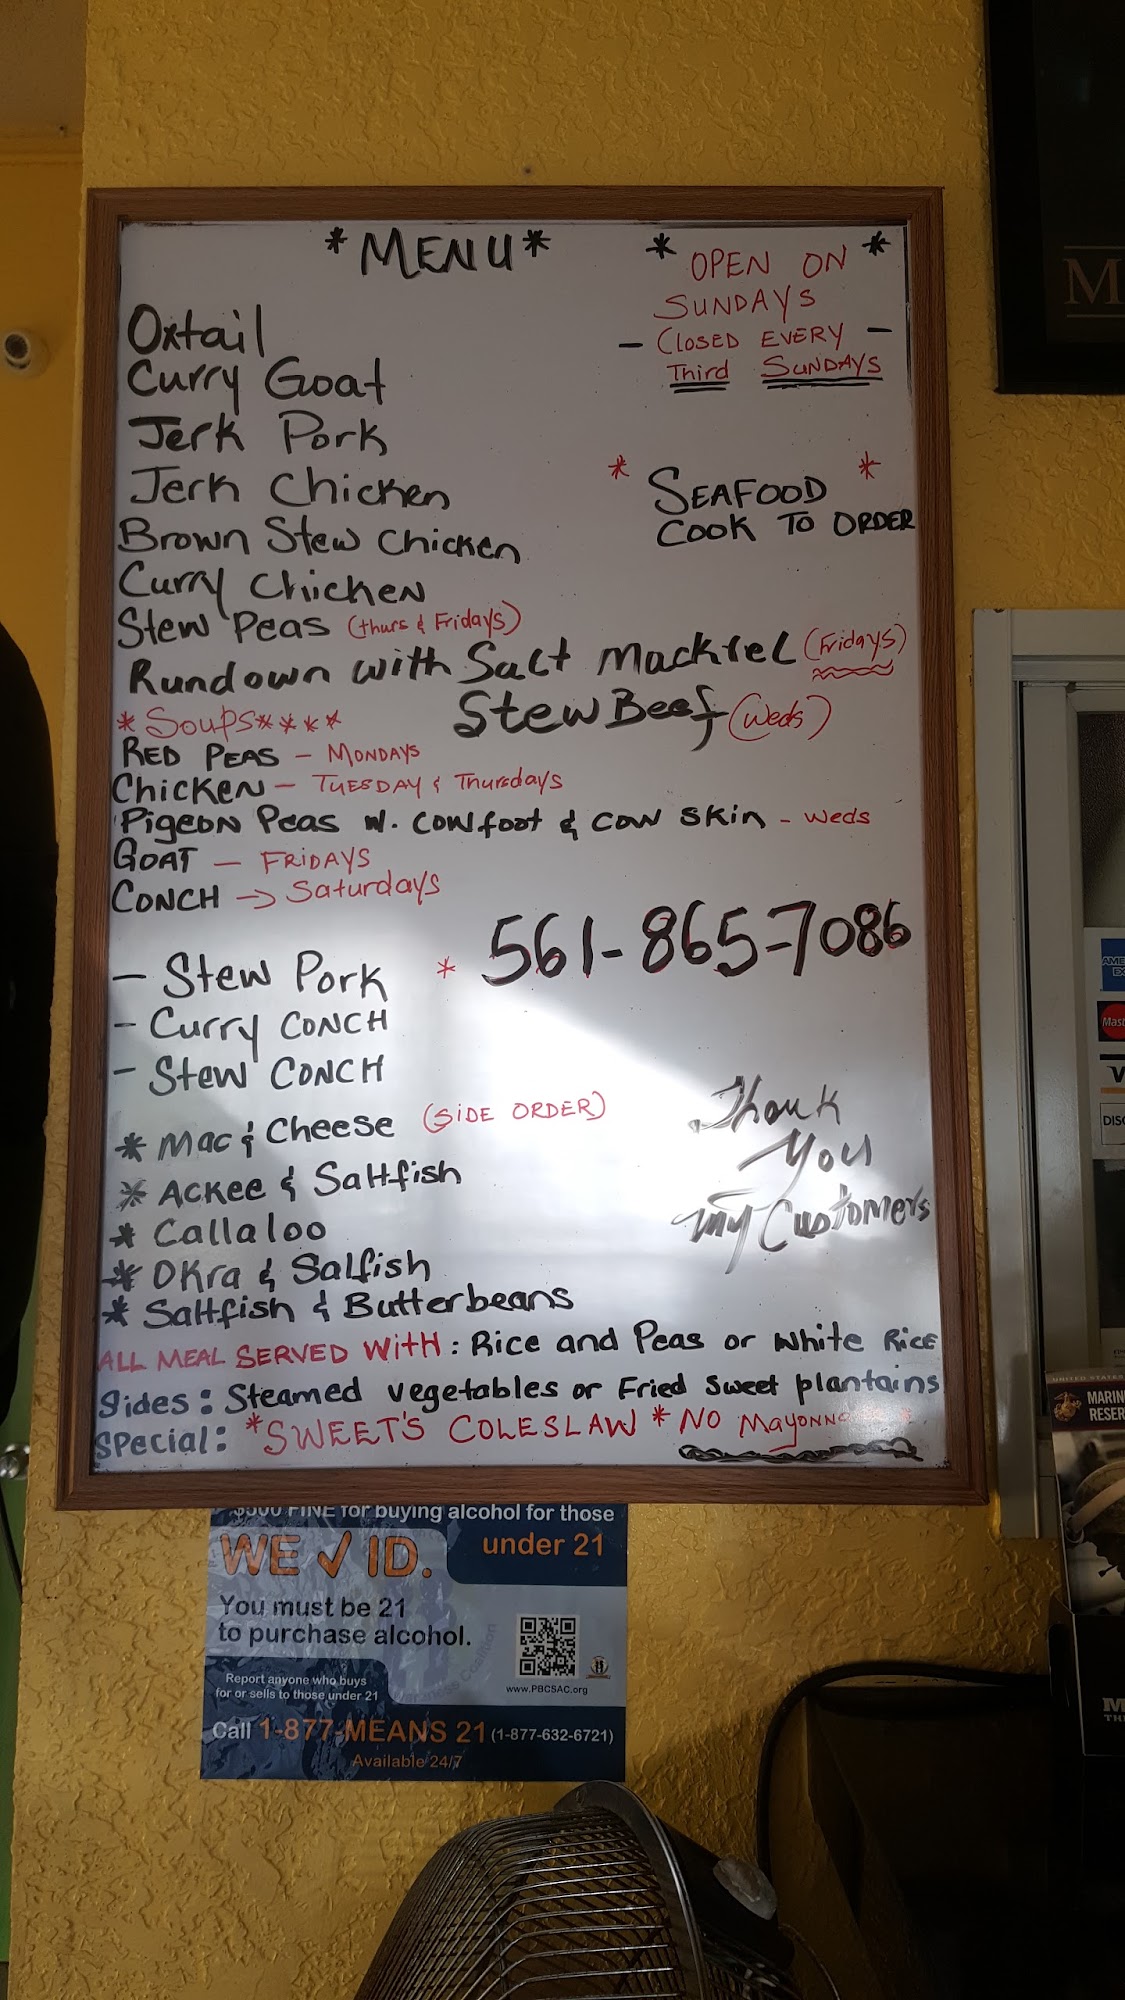 *MENU*
* OPEN ON *
SUNDAYS
- CLOSED EVERY -
Third SUNDAYS
Oxtail
Curry Goat
Jerk Pork
Jerk Chicken
* SEAFOOD *
COOK TO ORDER
Brown Stew Chicken
Curry Chicken
Stew Peas (thurs & Fridays)
Rundown with Salt Mackrel (Fridays)
Stew Beef (Weds)
*Soups****
RED PEAS - MONDAYS
Chicken - TUESDAY & Thursdays
Pigeon Peas w. cowfoot & cow skin - weds
GOAT - FRIDAYS
CONCH → Saturdays
* 561-865-7086
- Stew Pork
- Curry CONCH
- Stew CONCH
* Mac & Cheese (SIDE ORDER)
* Ackee & Saltfish
* Callaloo
* OKra & Salfish
* Saltfish & Butterbeans
Thank
You
my Customers
ALL MEAL SERVED WITH: Rice and Peas or White RICE
Sides: Steamed vegetables or Fried Sweet plantains
Special: *SWEET'S COLESLAW * NO
$500 FINE for buying alcohol for those
under 21
WE ✓ ID.
You must be 21
to purchase alcohol.
Report anyone who buys
for or sells to those under 21
www.PBCSAC.org
Call 1-877-MEANS 21 (1-877-632-6721)
Available 24/7
UNITED STATES
MARIN
RESER
DISC